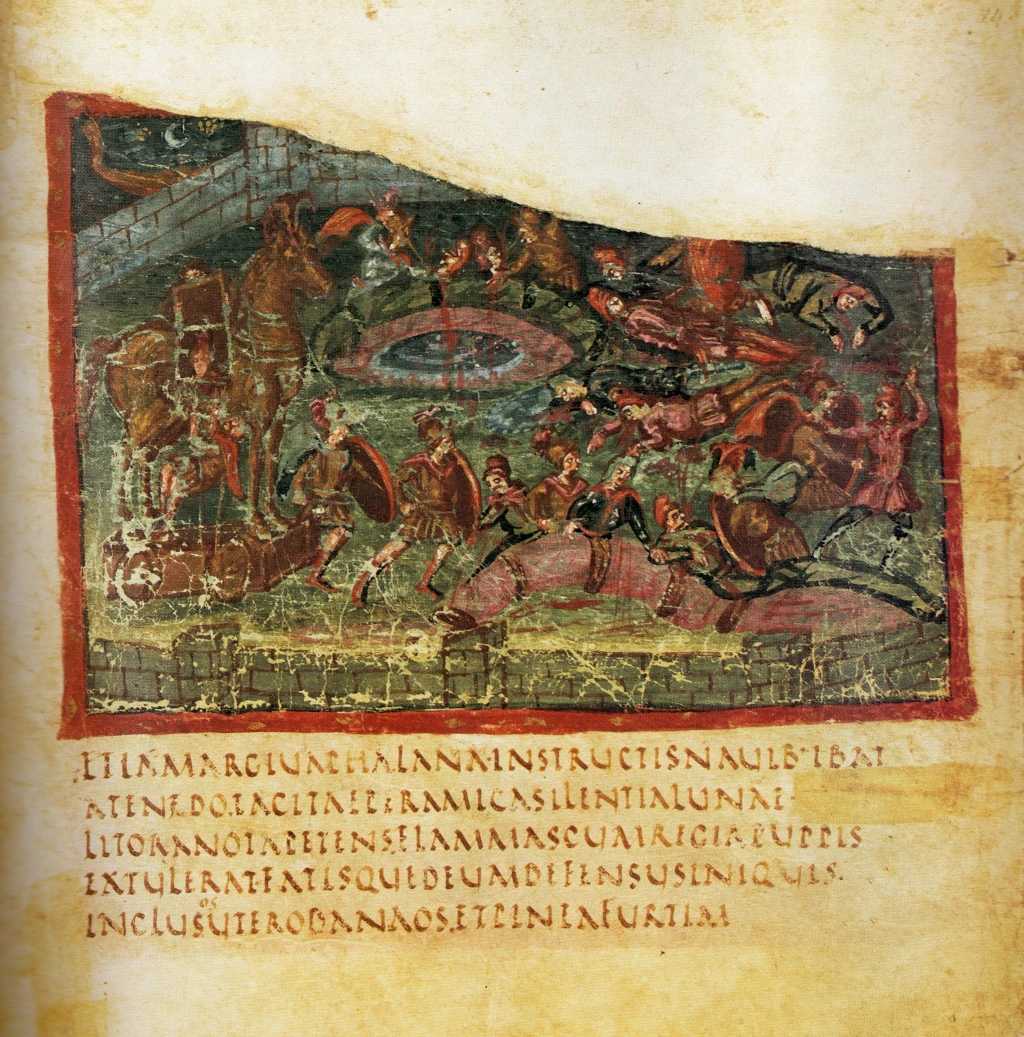 ETIAMARGIUAPHALANX·INSTRUCTISNAUIB·IBAT
ATENEDO.TACITAEPERAMICASILENTIALUNAE·
LITORANOTAPETENS.FLAMMASCUMREGIAPUPPIS
EXTULERATFATISQUEDEUMDEFENSUSINIQUIS·
OS
INCLUSUTERODANAOS.ETPINEAFURTIM